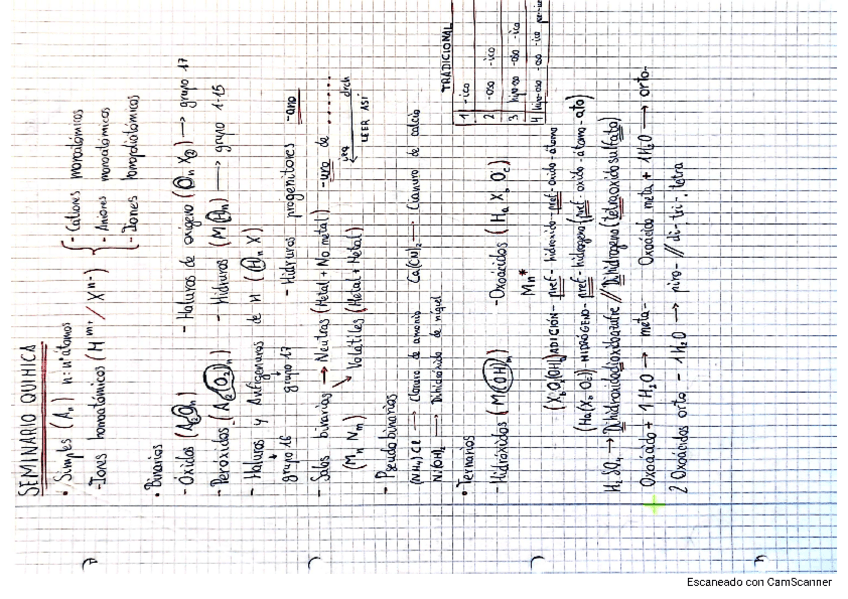 SEMINARIO QUIMICA
• Simples (An) n = nº átomos
- Iones homoatómicos (M^m+ / X^n-) { - Cationes monoatómicos
- Aniones monoatómicos
- Iones homopoliatómicos
• Binarios
- Óxidos (A2On) - Haluros de oxígeno (On X2) → grupo 17
- Peróxidos (A2(O2)n) - Hidruros (M Hn) → grupo 1-15
- Haluros y Anfigenuros de H (Hn X)
grupo 16 grupo 17 - Hidruros progenitores -ano
- Sales binarias → Neutras (Metal + No metal) -uro de .......
(Mn Nm) ↘ Volátiles (Metal + Metal) izq ← drch
LEER ASÍ
- Pseudobinarios
(NH4)Cl → Cloruro de amonio Ca(CN)2 → Cianuro de calcio
Ni(OH)2 → Dihidróxido de níquel
• Ternarios
- Hidróxidos (M(OH)m) - Oxoácidos (Ha Xb Oc)
Mn*
(XbOc(OH)a) ADICIÓN - pref - hidroxido - pref - oxido - átomo
(Ha(Xb Oc)) HIDRÓGENO - pref - hidrogeno (pref - oxido - átomo - ato)
H2SO4 → Dihidroxidodioxidoazufre // Dihidrogeno (tetraoxidosulfato)
Oxoácido + 1H2O → meta- Oxoácido meta + 1H2O → orto-
2 Oxoácidos orto - 1H2O → piro- // di-, tri-, tetra
TRADICIONAL
1 -ico
2 -oso -ico
3 hipo-oso -oso -ico
4 hipo-oso -oso -ico per-ico
Escaneado con CamScanner